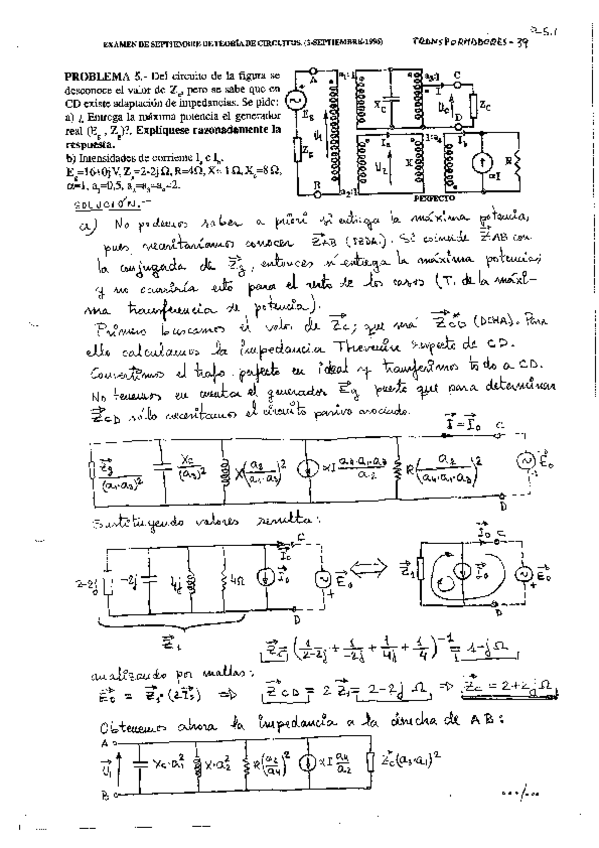 P-5.1
EXAMEN DE SEPTIEMBRE DE TEORÍA DE CIRCUITOS. (3-SEPTIEMBRE-1996) TRANSFORMADORES - 39
PROBLEMA 5.- Del circuito de la figura se
desconoce el valor de Zc, pero se sabe que en
CD existe adaptación de impedancias. Se pide:
a) ¿ Entrega la máxima potencia el generador
real (Eg , Zg)?. Explíquese razonadamente la
respuesta.
b) Intensidades de corriente Ia e Ib.
Eg=16+0j V, Zg=2-2j Ω, R=4Ω, X= 1 Ω, Xc=8 Ω,
α=1, a1=0,5, a2=a3=a4=2.
A a1:1 a3:1 C
I
Eg U1 XC UC ZC
D
1:a4 Ib
Zg U2 X αI R
B a2:1
PERFECTO
SOLUCIÓN.-
a) No podemos saber a priori si entrega la máxima potencia,
pues necesitaríamos conocer ZAB (IZDA). Si coincide ZAB con
la conjugada de Zg, entonces sí entrega la máxima potencia;
y no ocurriría esto para el resto de los casos (T. de la máxi-
ma transferencia de potencia).
Primero buscamos el valor de Zc; que será ZCD (DCHA). Para
ello calculamos la impedancia Thevenin respecto de CD.
Convertimos el trafo. perfecto en ideal y transferimos todo a CD.
No tenemos en cuenta el generador Eg puesto que para determinar
ZCD sólo necesitamos el circuito pasivo asociado.
I = I0 C
Zg/(a1·a3)² Xc/(a3)² X(a2/(a1·a3))² αI a4·a1·a3/a2 R(a2/(a4·a1·a3))² E0
D
Sustituyendo valores resulta:
2-2j -2j 4j 4Ω I0 I0 C E0 D Z1 I0 I0 C E0 D
Z1
Z1 = (1/(2-2j) + 1/(-2j) + 1/(4j) + 1/4)⁻¹ = 1-j Ω
analizando por mallas:
E0 = Z1·(2I0) ⇒ ZCD = 2 Z1 = 2-2j Ω ⇒ Zc = 2+2j Ω
Obtenemos ahora la impedancia a la derecha de AB:
A
U1 Xc·a1² X·a2² R(a2/a4)² αI a4/a2 Zc(a3·a1)²
B
.../...